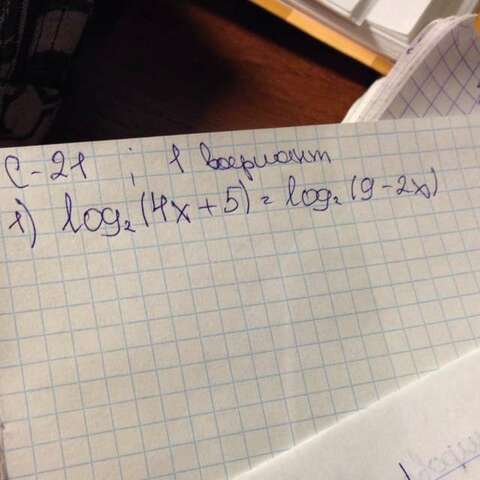 С-21 ; 1 вариант
1) log₂(4x+5)=log₂(9-2x)